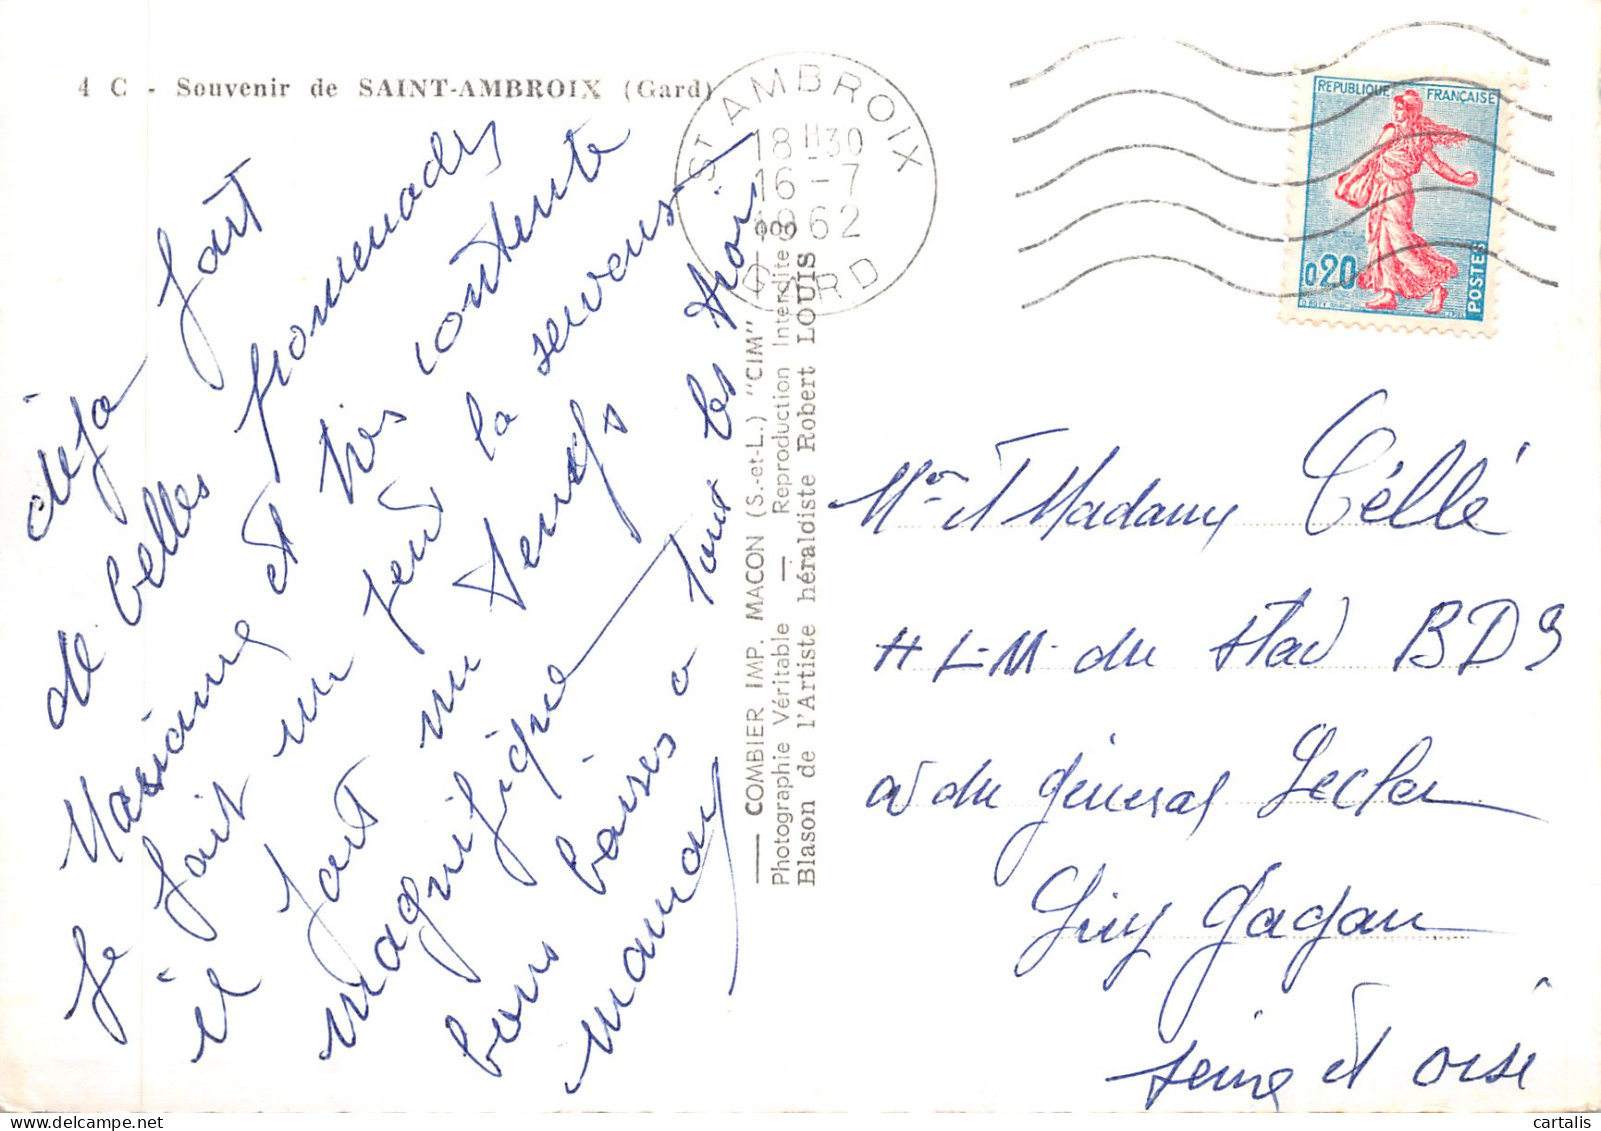 4 C - Souvenir de SAINT-AMBROIX (Gard)
ST AMBROIX
18 H 30
16 - 7
1962
GARD
REPUBLIQUE FRANÇAISE
0,20
POSTES
déja fait
de belles promenades
Marianne et très contente
je fait un peut la serveuse
il fait un temps
magnifique
bons baises a tous les trois
maman
COMBIER IMP. MACON (S.-et-L.) "CIM"
Photographie Véritable — Reproduction Interdite
Blason de l'Artiste héraldiste Robert LOUIS
Mr et Madame Céllé
H L-M- du stad BD9
av du général Lecler
Giny Gagan
seine et oise
cartalis